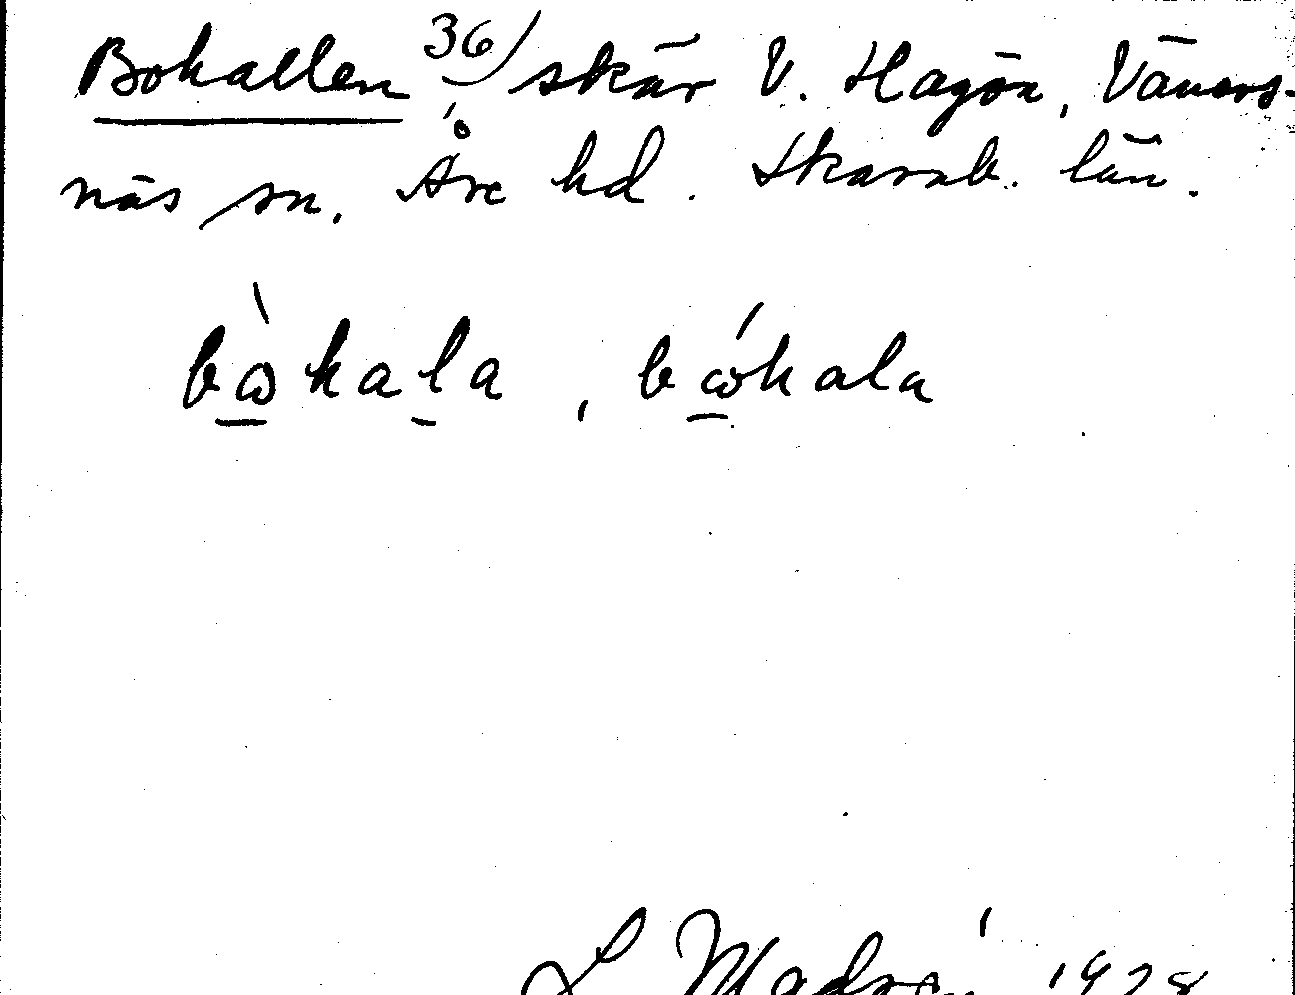 Bohallen 36/ skär V. Hagön, Väners-
näs sn, Åse hd. Skarab. län.
bὼhala, bώhala
1928